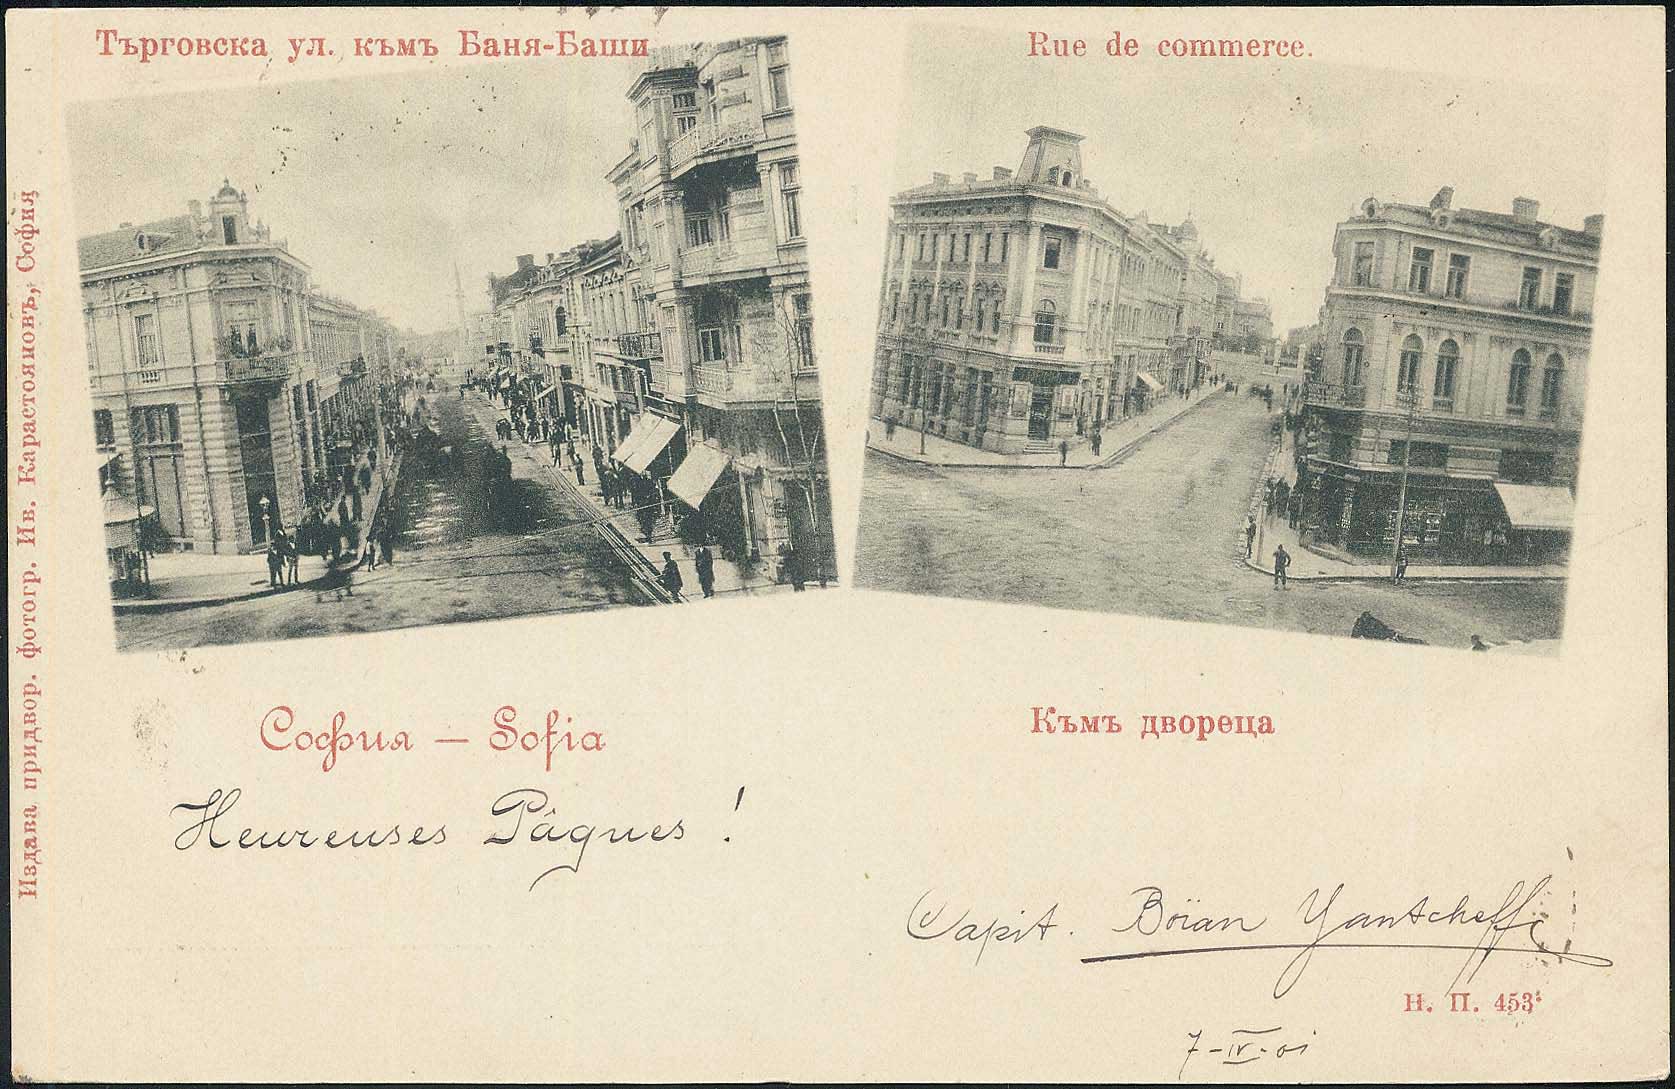 Търговска ул. къмъ Баня-Баши
Rue de commerce.
Издава придвор. фотогр. Ив. Карастояновъ, София
София — Sofia
Къмъ двореца
Heureuses Pâques !
Capit. Boïan Yantcheff
Н. П. 453
7-IV-01